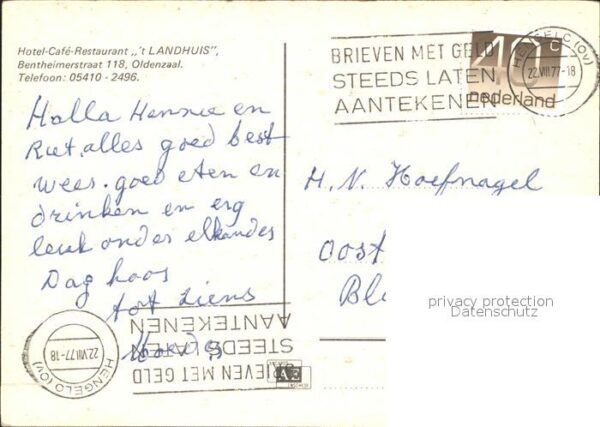 Hotel-Café-Restaurant „'t LANDHUIS",
Bentheimerstraat 118, Oldenzaal.
Telefoon: 05410 - 2496.
Halla Hennie en
Riet. alles goed best
wees. goed eten en
drinken en erg
leuk onder elkander
Dag hoos
tot ziens
BRIEVEN MET GELD
STEEDS LATEN
AANTEKENEN
40 c
nederland
HENGELO (OV)
22.VIII.77-18
H. N. Hoefnagel
Oost
Bl
privacy protection
Datenschutz
BRIEVEN MET GELD
STEEDS LATEN
AANTEKENEN
HENGELO (OV)
22.VIII.77-18
AE